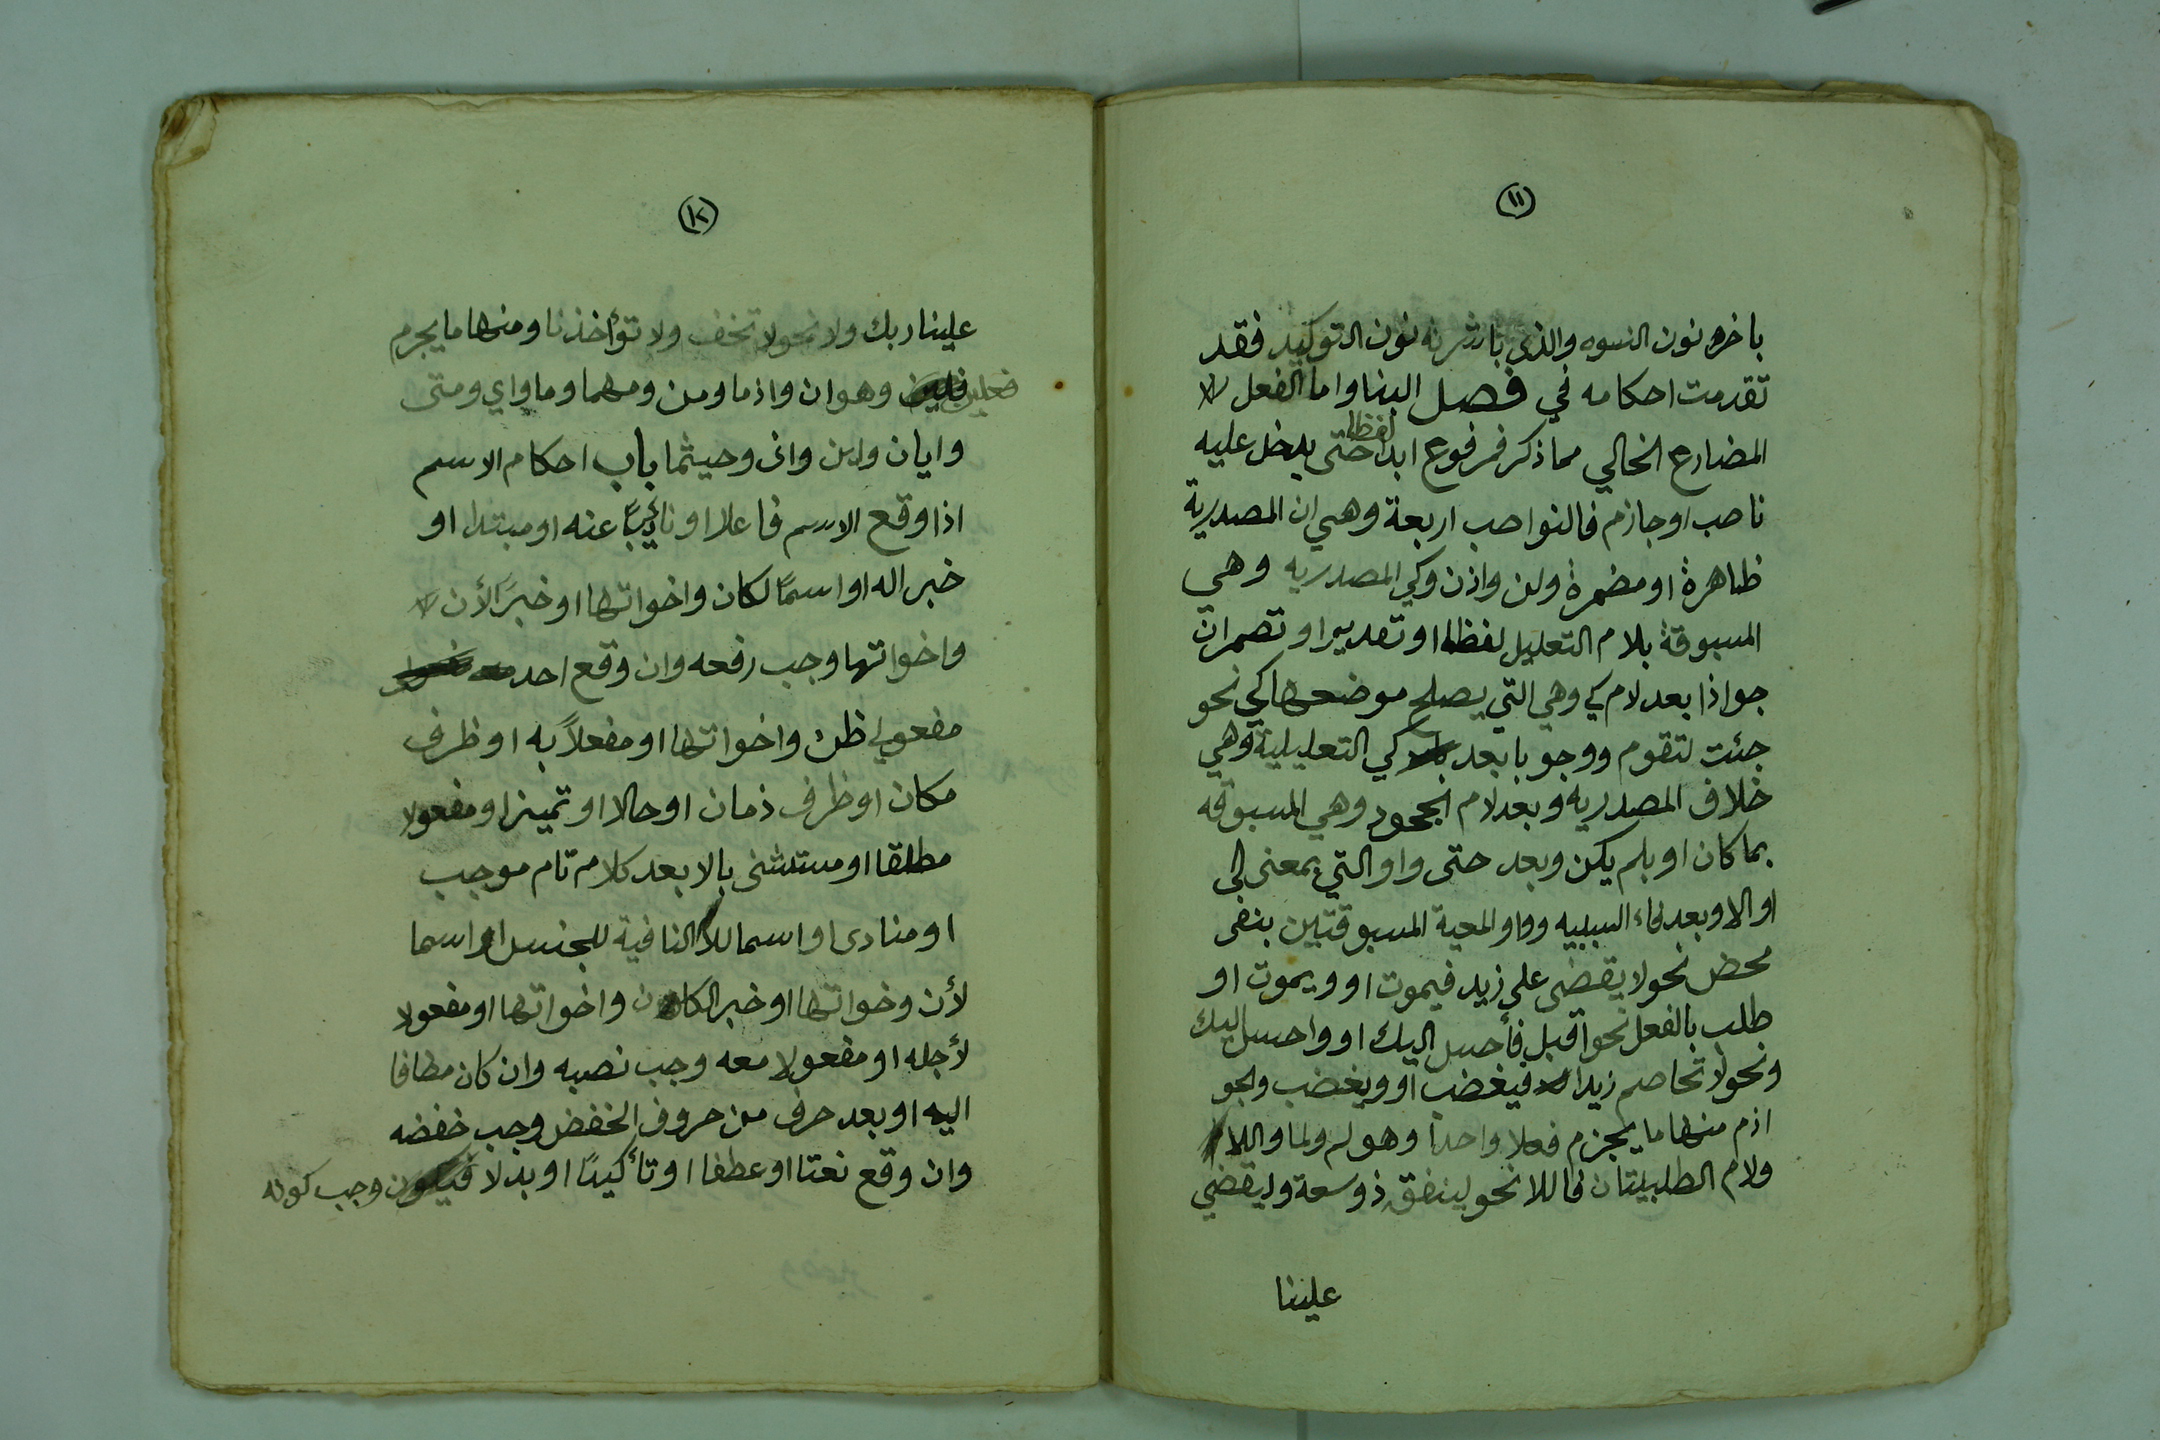 ١١
باخره نون النسوه والذي باشرته نون التوكيد فقد
تقدمت احكامه في فصل البنا واما الفعل
المضارع الخالي مما ذكر فمرفوع ابدا لفظا حتى يدخل عليه
ناصب او جازم فالنواصب اربعة وهي ان المصدرية
ظاهرة او مضمرة ولن واذن وكي المصدريه وهي
المسبوقة بلام التعليل لفظا او تقديرا وتضمر ان
جواذا بعد لام كي وهي التي يصلح موضعها كي نحو
جئت لتقوم ووجوبا بعد كي التعليلية وهي
خلاف المصدريه وبعد لام الجحود وهي المسبوقه
بما كان او بلم يكن وبعد حتى واو التي بمعنى الى
او الا وبعد فاء السببيه وواو المعية المسبوقتين بنفى
محض نحو لا يقضى على زيد فيموت او ويموت او
طلب بالفعل نحو اقبل فأحسن اليك او واحسن اليك
ونحو لا تخاصم زيدا فيغضب او ويغضب والجو
اذم منها ما يجزم فعلا واحدا وهو لم ولما واللا
ولام الطلبيتان فاللا نحو لينفق ذو سعة وليقضي
علينا
١٢
علينا ربك ولا نحو لا تخف ولا تؤاخذنا ومنها ما يجزم
فعلين وهو ان واذما ومن ومهما وما واي ومتى
وايان واين وانى وحيثما باب احكام الاسم
اذا وقع الاسم فاعلا او نائبًا عنه او مبتدا او
خبر اله او اسمًا لكان واخواتها او خبرًا لأن
واخواتها وجب رفعه وان وقع احد
مفعولي ظن واخواتها او مفعلاً به او ظرف
مكان او ظرف ذمان او حالا او تميزا او مفعولا
مطلقا او مستثنى بالا بعد كلام تام موجب
او منادى او اسما للا النافية للجنس او اسما
لأن وخواتها او خبر الكان واخواتها او مفعولا
لأجله او مفعولا معه وجب نصبه وان كان مظافا
اليه او بعد حرف من حروف الخفض وجب خفضه
وان وقع نعتا او عطفا او تأكيدًا او بدلا وجب كونه